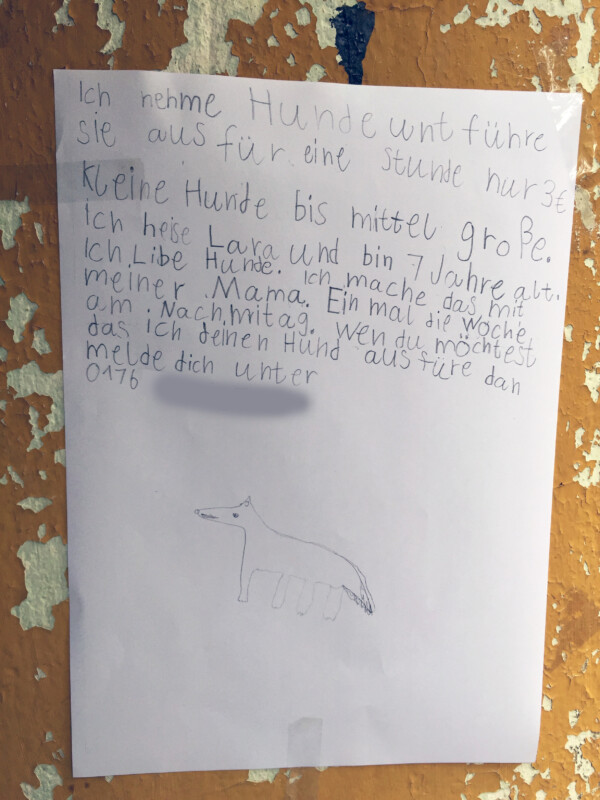 Ich nehme Hunde unt führe
sie aus für eine stunde nur 3€
kleine Hunde bis mittel große.
ich heise Lara und bin 7 Jahre alt.
Ich Libe Hunde. Ich mache das mit
meiner Mama. Ein mal die Woche
am Nachmitag. Wen du möchtest
das ich deinen Hund aus füre dan
melde dich unter
0176